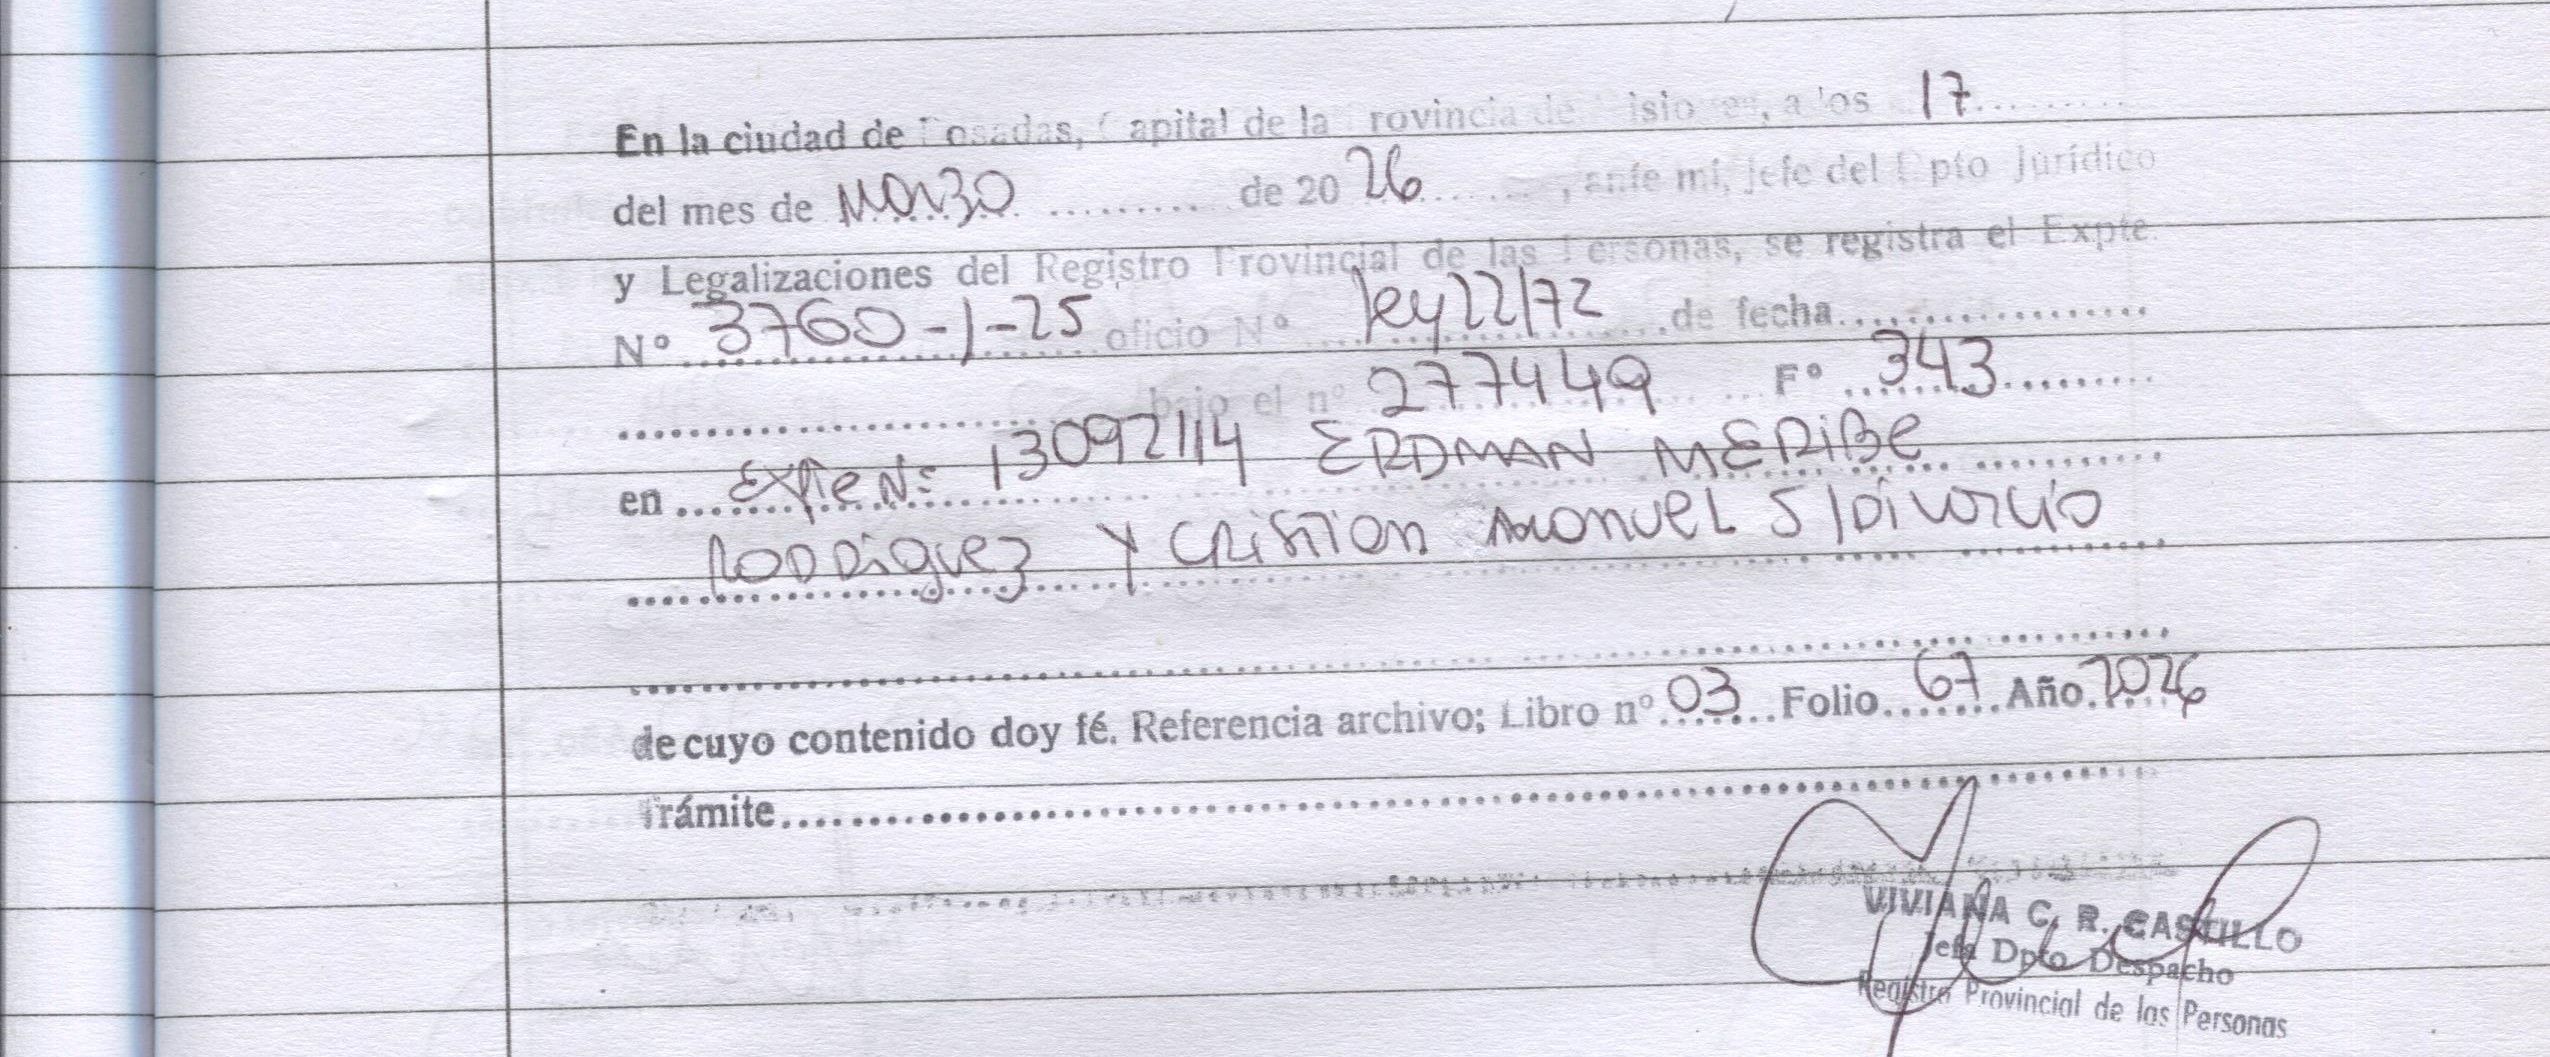 En la ciudad de Posadas, Capital de la Provincia de Misiones, a los 17
del mes de Marzo de 20 26, ante mí, jefe del Dpto Jurídico
y Legalizaciones del Registro Provincial de las Personas, se registra el Expte.
N° 3760-1-25 oficio N° ley 22172 de fecha
bajo el n° 277449 F° 343
en Expte N° 130921/14 ERDMAN MERIBE
RODRIGUEZ Y CRISTIAN MANUEL S/DIVORCIO
de cuyo contenido doy fé. Referencia archivo; Libro n° 03 Folio 67 Año 2026
Trámite
VIVIANA C. R. CASTILLO
Jefa Dpto Despacho
Registro Provincial de las Personas